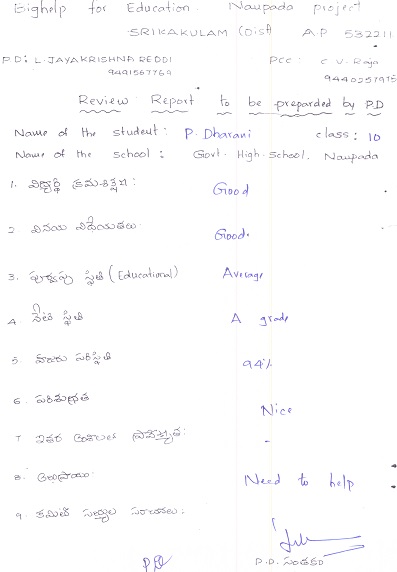 Bighelp for Education. Naupada project
SRIKAKULAM (Dist) A.P 532211
P.D: L. JAYAKRISHNA REDDI PCC: C V. Raja
9491567769 9440257915
Review Report to be preparded by P.D
Name of the student: P. Dharani class: 10
Name of the school: Govt. High. School. Naupada
1. విద్యార్థి క్రమశిక్షణ: Good
2 వినయ విధేయతలు: Good.
3. పూర్వపు స్థితి (Educational) Average
4. నేటి స్థితి A grade
5 హాజరు పరిస్థితి 94%
6. పరిశుభ్రత Nice
7 ఇతర అంశాలలో ప్రావీణ్యత: -
8. అభిప్రాయం: Need to help
9. కమిటీ సభ్యుల సూచనలు:
P.D P.D. సంతకం